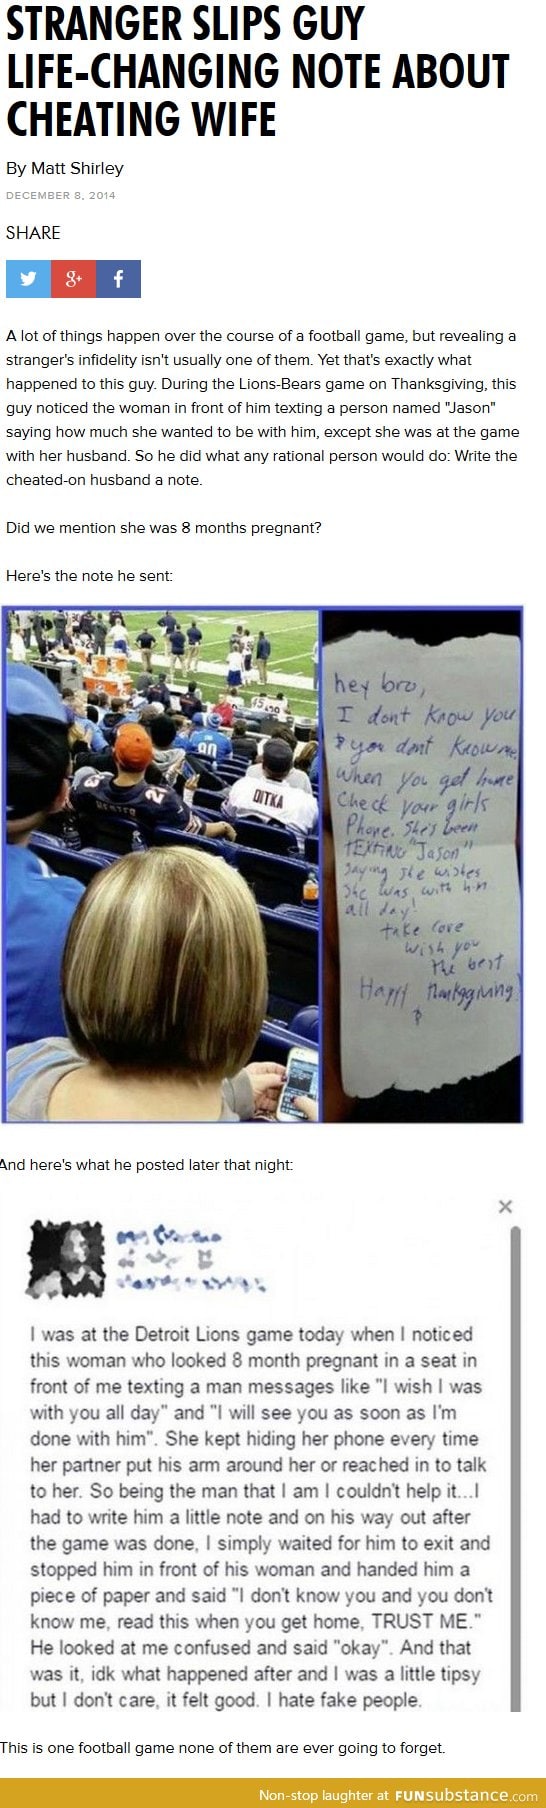 STRANGER SLIPS GUY
LIFE-CHANGING NOTE ABOUT
CHEATING WIFE
By Matt Shirley
DECEMBER 8, 2014
SHARE
g+
f
A lot of things happen over the course of a football game, but revealing a
stranger's infidelity isn't usually one of them. Yet that's exactly what
happened to this guy. During the Lions-Bears game on Thanksgiving, this
guy noticed the woman in front of him texting a person named "Jason"
saying how much she wanted to be with him, except she was at the game
with her husband. So he did what any rational person would do: Write the
cheated-on husband a note.
Did we mention she was 8 months pregnant?
Here's the note he sent:
HESTER
23
90
DITKA
hey bro,
I dont know you
& you dont know me,
When you get home
Check your girls
Phone. She's been
TEXTING "Jason"
Saying she wishes
She was with him
all day!
take care
wish you
the best
Happy thanksgiving!
And here's what he posted later that night:
×
I was at the Detroit Lions game today when I noticed
this woman who looked 8 month pregnant in a seat in
front of me texting a man messages like "I wish I was
with you all day" and "I will see you as soon as I'm
done with him". She kept hiding her phone every time
her partner put his arm around her or reached in to talk
to her. So being the man that I am I couldn't help it...I
had to write him a little note and on his way out after
the game was done, I simply waited for him to exit and
stopped him in front of his woman and handed him a
piece of paper and said "I don't know you and you don't
know me, read this when you get home, TRUST ME."
He looked at me confused and said "okay". And that
was it, idk what happened after and I was a little tipsy
but I don't care, it felt good. I hate fake people.
This is one football game none of them are ever going to forget.
Non-stop laughter at FUNsubstance.com